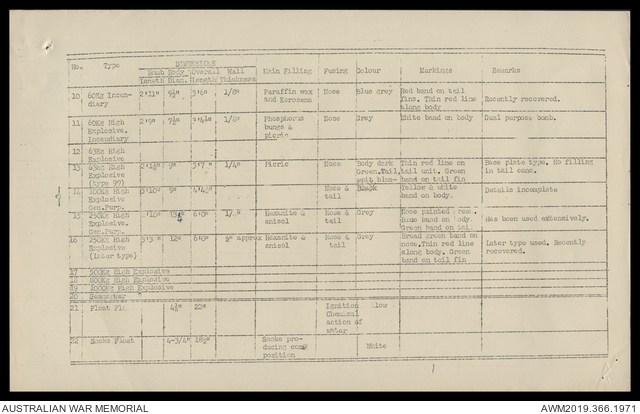 No. Type DIMENSIONS Main Filling Fusing Colour Markings Remarks
Bomb Length Body Diam. Overall Length Wall Thickness
10 60Kg Incendiary 2'11" 9½" 3'6" 1/8" Paraffin wax and Kerosene Nose Blue grey Red band on tail fins. Thin red line along body Recently recovered.
11 60Kg High Explosive. Incendiary 2'9" 1/8" Phosphorus bungs & picric Nose Grey White band on body Dual purpose bomb.
12 63Kg High Explosive
13 63Kg High Explosive (type 99) 9" 3'7" 1/4" Picric Nose Body dark Green. Tail unit blue- Thin red line on tail unit. Green band on tail fin Base plate type. No filling in tail cone.
14 100Kg High Explosive Gen.Purp. 9" Nose & tail Black Yellow & white band on body. Details incomplete
15 250Kg High Explosive. Gen.Purp. 6'0" Hexanite & anisol Nose & tail Grey Nose painted red. Blue band on body. Green band on tail Has been used extensively.
16 250Kg High Explosive (later type) 12" 6'0" approx Hexanite & anisol Nose & tail Grey Broad green band on nose. Thin red line along body. Green band on tail fin Later type used. Recently recovered.
17 500Kg High Explosive
18 800Kg High Explosive
19 1000Kg High Explosive
20 Seamarker
21 Float 22" Ignition Chemical action of water
22 Smoke Float 4-3/4" 18½" Smoke producing composition White
AUSTRALIAN WAR MEMORIAL AWM2019.366.1971